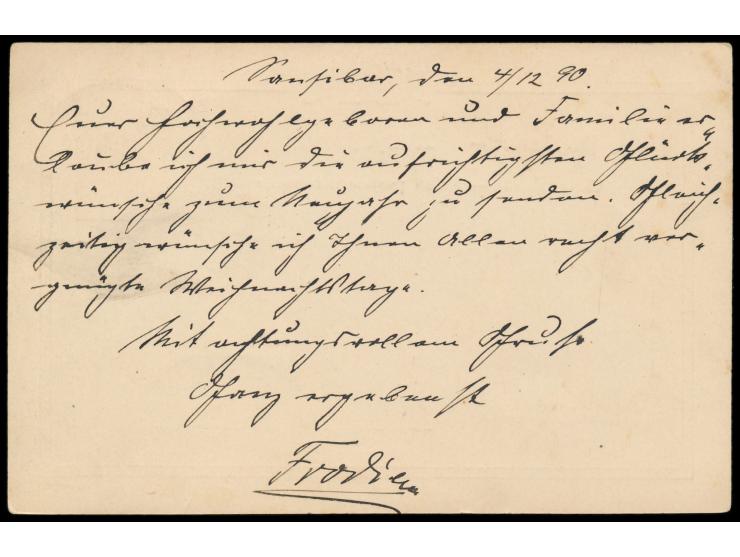 Sansibar, den 4/12 90.
Euer Hochwohlgeboren und Familie er„
laube ich mir die aufrichtigsten Glück„
wünsche zum Neujahr zu senden. Gleich„
zeitig wünsche ich Ihnen Allen recht ver„
gnügte Weihnachtstage.
Mit achtungsvollem Gruße
Ganz ergebenst